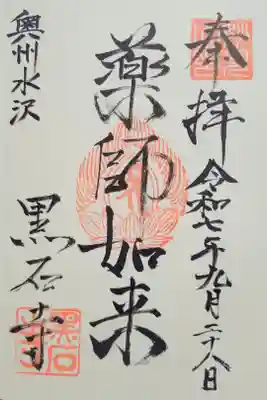 奉拝 令和七年九月二十八日
薬師如来
奥州水沢
黒石寺
黒石